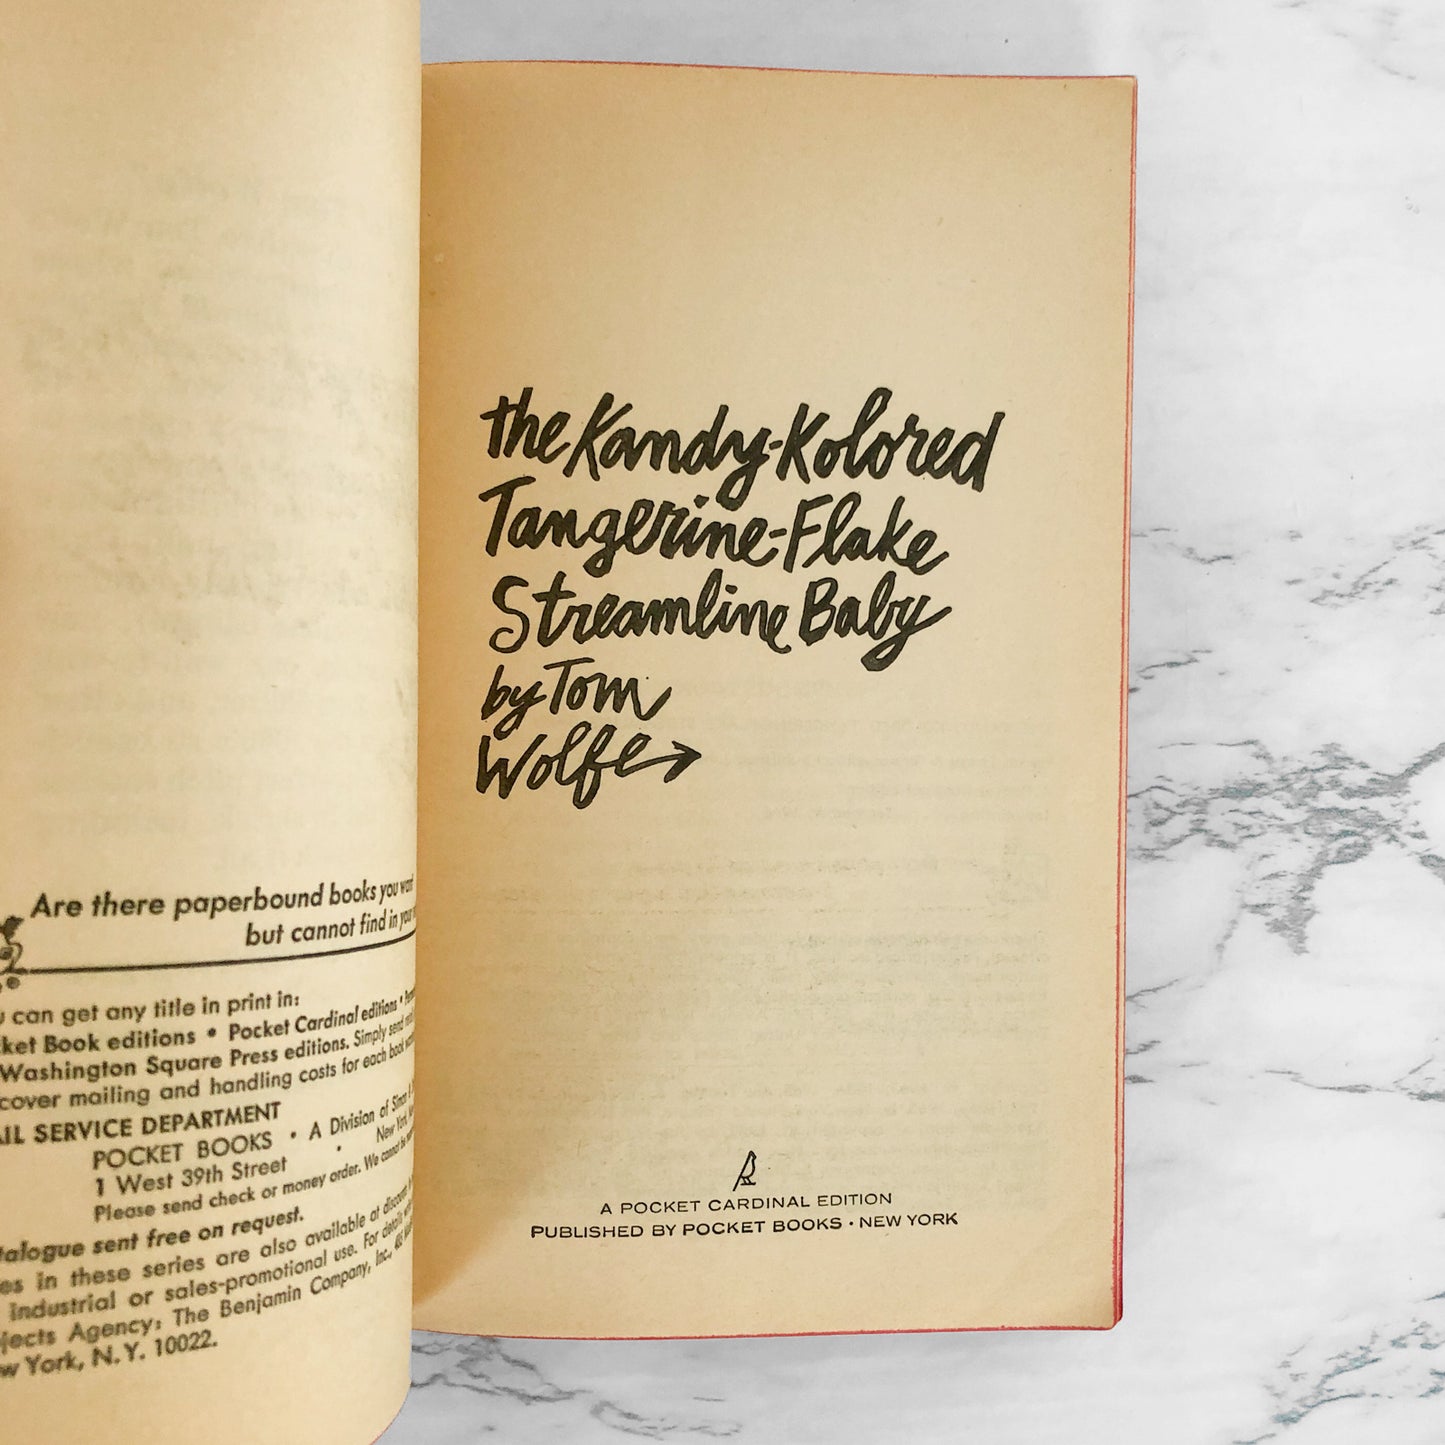 Are there paperbound books you want
but cannot find in your
can get any title in print in:
Book editions • Pocket Cardinal editions •
Washington Square Press editions. Simply send
cover mailing and handling costs for each book
SERVICE DEPARTMENT
POCKET BOOKS • A Division of Simon &
1 West 39th Street • New York,
Please send check or money order. We cannot be
sent free on request.
in these series are also available at discounts
industrial or sales-promotional use. For details
Agency: The Benjamin Company, Inc., 485
York, N.Y. 10022.
the Kandy-Kolored
Tangerine-Flake
Streamline Baby
by Tom
Wolfe
A POCKET CARDINAL EDITION
PUBLISHED BY POCKET BOOKS • NEW YORK